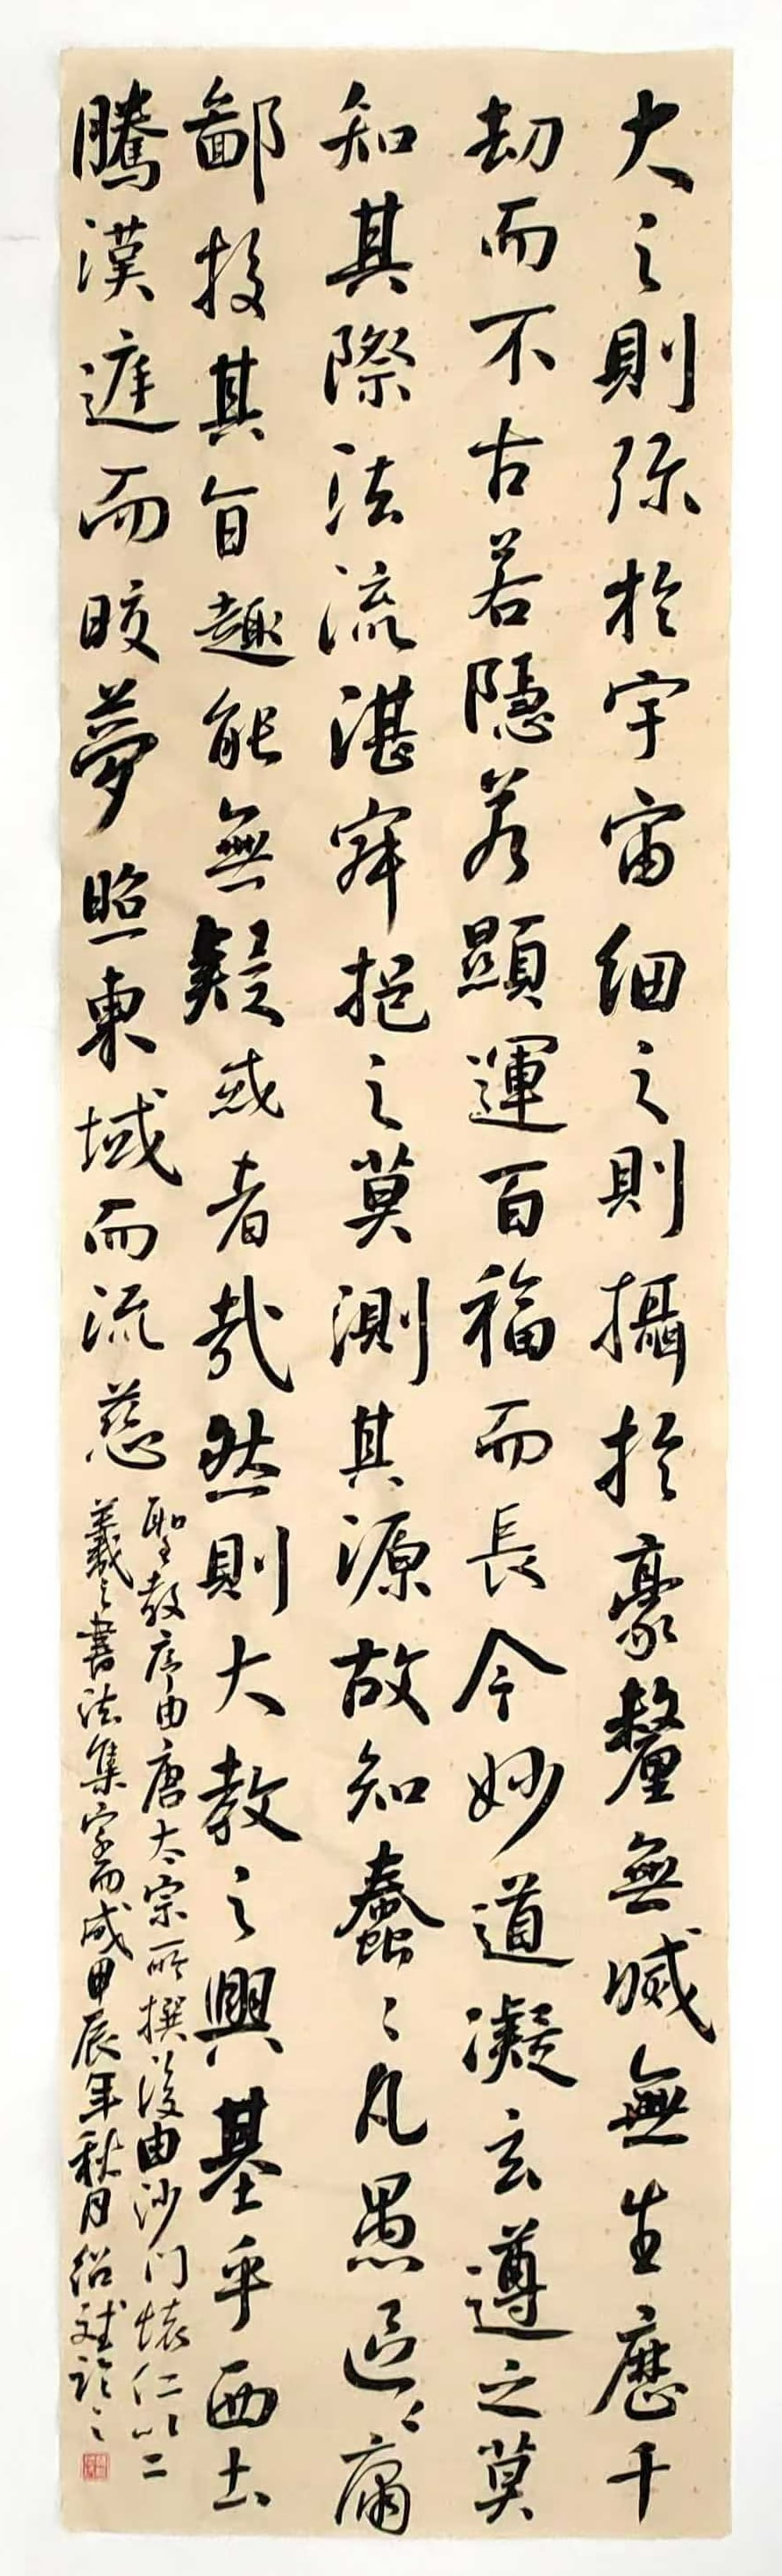 大之則弥於宇宙細之則攝於豪釐無滅無生歷千
劫而不古若隱若顯運百福而長今妙道凝玄遵之莫
知其際法流湛寂挹之莫測其源故知蠢〻凡愚區〻庸
鄙投其旨趣能無疑惑者哉然則大教之興基乎西土
騰漢庭而皎夢照東域而流慈
聖教序由唐太宗所撰後由沙门懷仁以二
羲之書法集字而成甲辰年秋月紹斌臨之